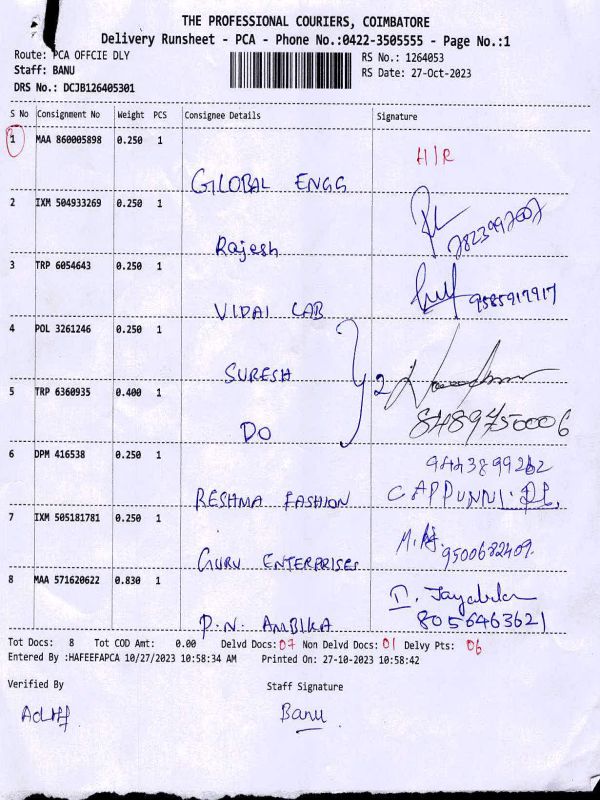 THE PROFESSIONAL COURIERS, COIMBATORE
Delivery Runsheet - PCA - Phone No.:0422-3505555 - Page No.:1
Route: PCA OFFCIE DLY
RS No.: 1264053
Staff: BANU
RS Date: 27-Oct-2023
DRS No.: DCJB126405301
S No Consignment No Weight PCS Consignee Details Signature
1 MAA 860005898 0.250 1 GLOBAL ENGG H/R
2 IXM 504933269 0.250 1 Rajesh
3 TRP 6054643 0.250 1 VIDAI LAB 9585917917
4 POL 3261246 0.250 1 SURESH 2
5 TRP 6360935 0.400 1 DO 8489750006
6 DPM 416538 0.250 1 RESHMA FASHION
7 IXM 505181781 0.250 1 GURU ENTERPRISES 9500682409.
8 MAA 571620622 0.830 1 P.N. AMBIKA 8056463621
Tot Docs: 8 Tot COD Amt: 0.00 Delvd Docs: 07 Non Delvd Docs: 01 Delvy Pts: 06
Entered By :HAFEEFAPCA 10/27/2023 10:58:34 AM Printed On: 27-10-2023 10:58:42
Verified By Staff Signature
Banu